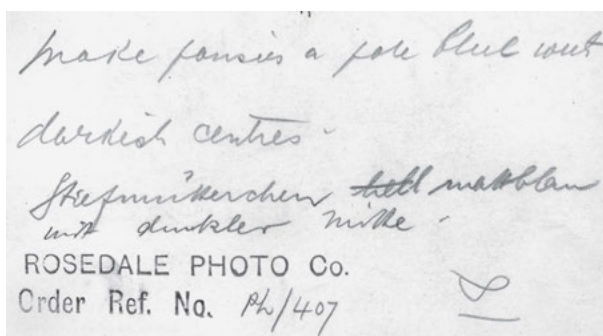 make pansies a pale blue with
darkish centres.
Stiefmütterchen hell mattblau
mit dunkler Mitte.
ROSEDALE PHOTO Co.
Order Ref. No. Ph/407